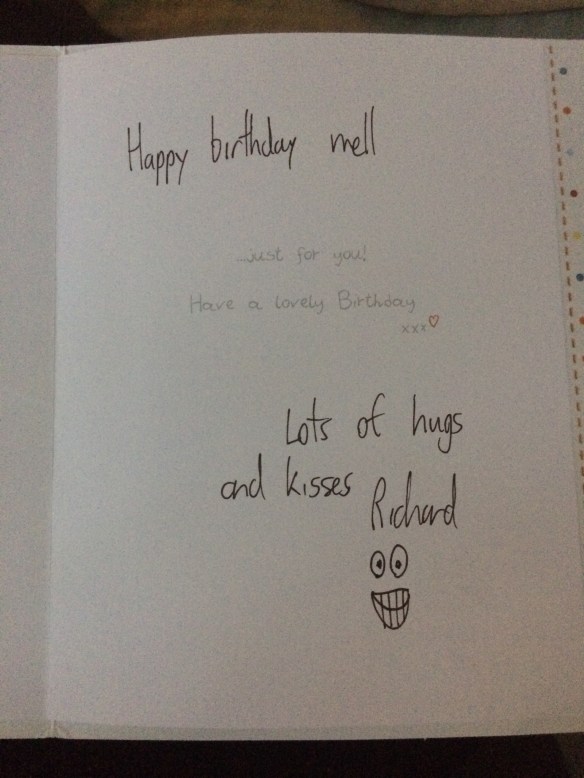 Happy birthday mell
...just for you!
Have a lovely Birthday
xxx♡
Lots of hugs
and kisses
Richard